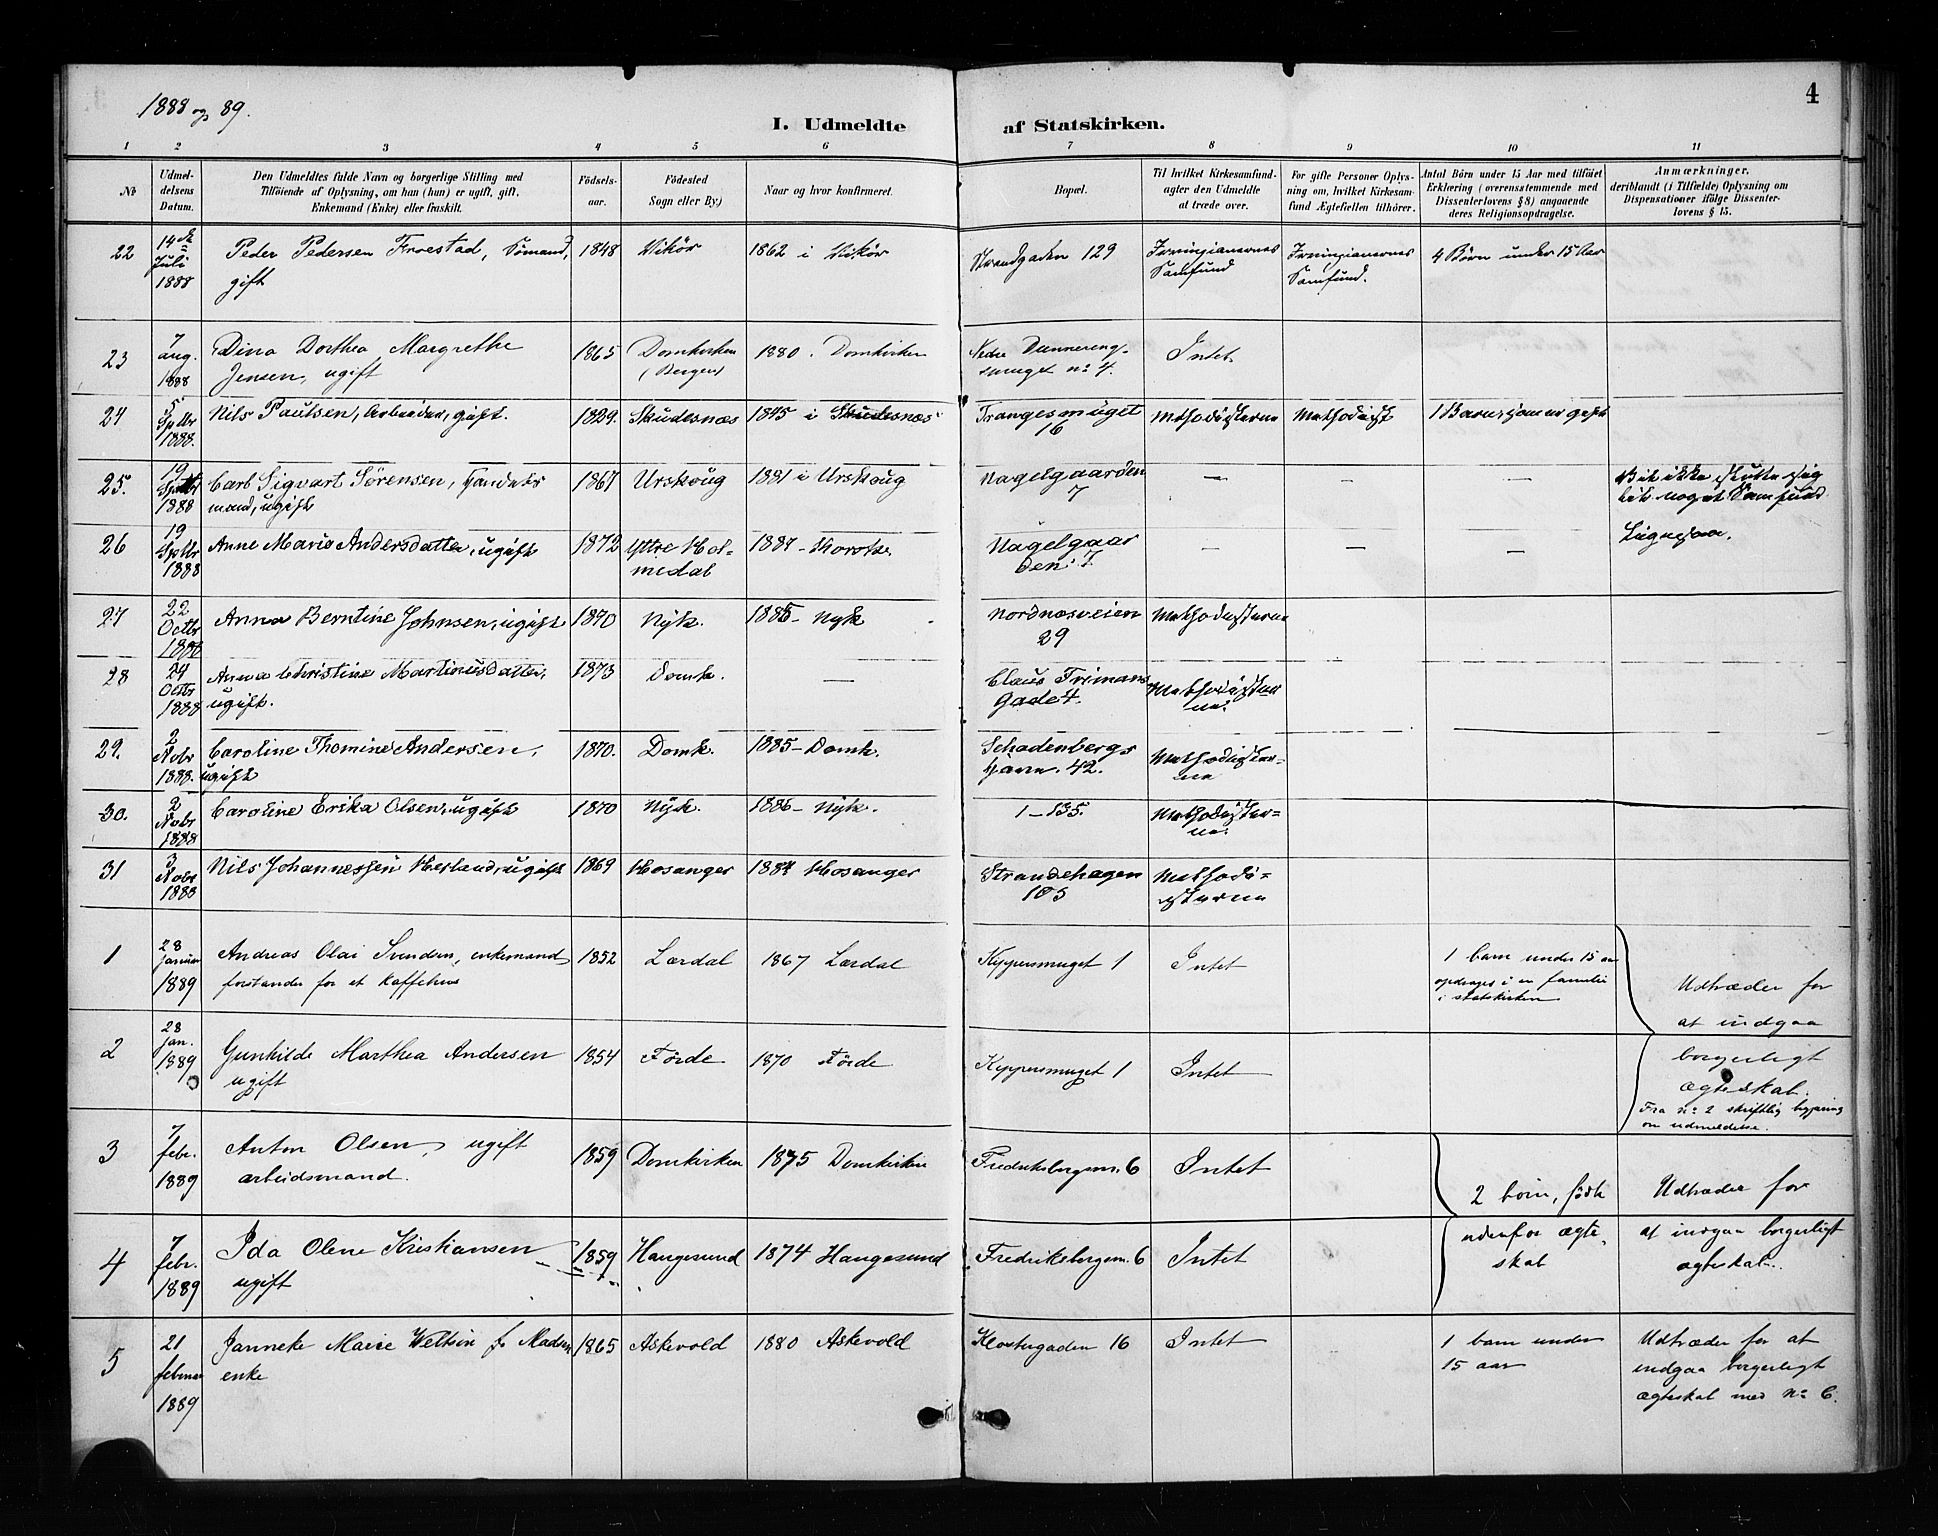 1888 og 89.
4
I. Udmeldte af Statskirken.
1 2 3 4 5 6 7 8 9 10 11
No
Udmel-
delsens
Datum.
Den Udmeldtes fulde Navn og borgerlige Stilling med
Tilföiende af Oplysning, om han (hun) er ugift, gift,
Enkemand (Enke) eller fraskilt.
Födsels-
aar.
Födested
Sogn eller By.)
Naar og hvor konfirmeret.
Bopæl.
Til hvilket Kirkesamfund-
agter den Udmeldte
at træde over.
For gifte Personer Oplys-
ning om, hvilket Kirkesam-
fund Ægtefællen tilhörer.
Antal Börn under 15 Aar med tilföiet
Erklæring (overensstemmende med
Dissenterlovens § 8) angaaende
deres Religionsopdragelse.
Anmærkninger,
deriblandt (i Tilfælde) Oplysning om
Dispensationer ifölge Dissenter-
lovens § 15.
22 14de Juli 1888 Peder Pedersen Froestad, Sömand, gift 1848 Vikör 1862 i Vikör Strandgaden 129 Irvingianernes Samfund Irvingianernes Samfund. 4 Börn under 15 Aar
23 7 aug. 1888 Dina Dorthea Margrethe Jensen, ugift 1865 Domkirken (Bergen) 1880. Domkirken Nedre smuget no 4. Intet.
24 5 Septbr 1888. Nils Paulsen, Arbeider, gift. 1829. Skudesnæs 1845 i Skudesnæs Trangesmuget 16 Methodisterne Methodist 1 Barn, som er gift
25. 19 Septbr 1888 Carl Sigvart Sörensen, Handelsmand, ugift 1867 Urskoug 1881 i Urskoug Nagelgaarden 7 — — — Vil ikke slutte sig til noget Samfund.
26 19 Septbr 1888 Anne Marie Andersdatter, ugift 1872 Yttre Holmedal 1887 - Korsk. Nagelgaarden 7. — — — Ligesaa.
27 22 Octbr 1888 Anna Berntine Johnsen, ugift 1870 Nyk. 1885 - Nyk Nordnæsveien 29 Methodisterne
28 24 Octbr 1888 Anna Christine Martinusdatter, ugift. 1873 Domk. — Claus Frimans Gade 4. Methodisterne.
29. 2 Nobr 1888. Caroline Thomine Andersen, ugift 1870. Domk. 1885 - Domk. 42. Methodisterne
30. 2 Nobr 1888 Caroline Erika Olsen, ugift 1870 Nyk. 1886 - Nyk. 1 - 135. Methodisterne.
31 3 Nobr 1888 Nils Johannessen Herland, ugift 1869 Hosanger 1884 Hosanger Strandehagen 105 Methodisterne
1 28 Januar 1889 Andreas Olai Svendsen, enkemand forstander for et kaffehus 1852 Lærdal 1867 Lærdal Kippersmuget 1 Intet 1 barn under 15 aar opdrages i en familie i statskirken
Udtræder for
at indgaa
borgerligt
ægteskab.
2 28 Jan. 1889 Gunhilde Marthea Andersen ugift 1854 Förde 1870 Förde Kippersmuget 1 Intet Fra no 2 skriftlig begjæring om udmeldelse.
3 7 febr. 1889 Anton Olsen, ugift arbeidsmand. 1859 Domkirken 1875 Domkirken Fredriksbergsm. 6 Intet
2 börn, födt
udenfor ægte
skab
Udtræder for
at indgaa borgerligt
ægteskab.
4 7 febr. 1889 Ida Olene Kristiansen ugift 1859 Haugesund 1874 Haugesund Fredriksbergsm. 6 Intet
5 21 februar 1889 Janneke Marie Weltzin f. Madsen enke 1865 Askevold 1880 Askevold Klostergaden 16 Intet 1 barn under 15 aar Udtræder for at indgaa borgerligt ægteskab med No 6.